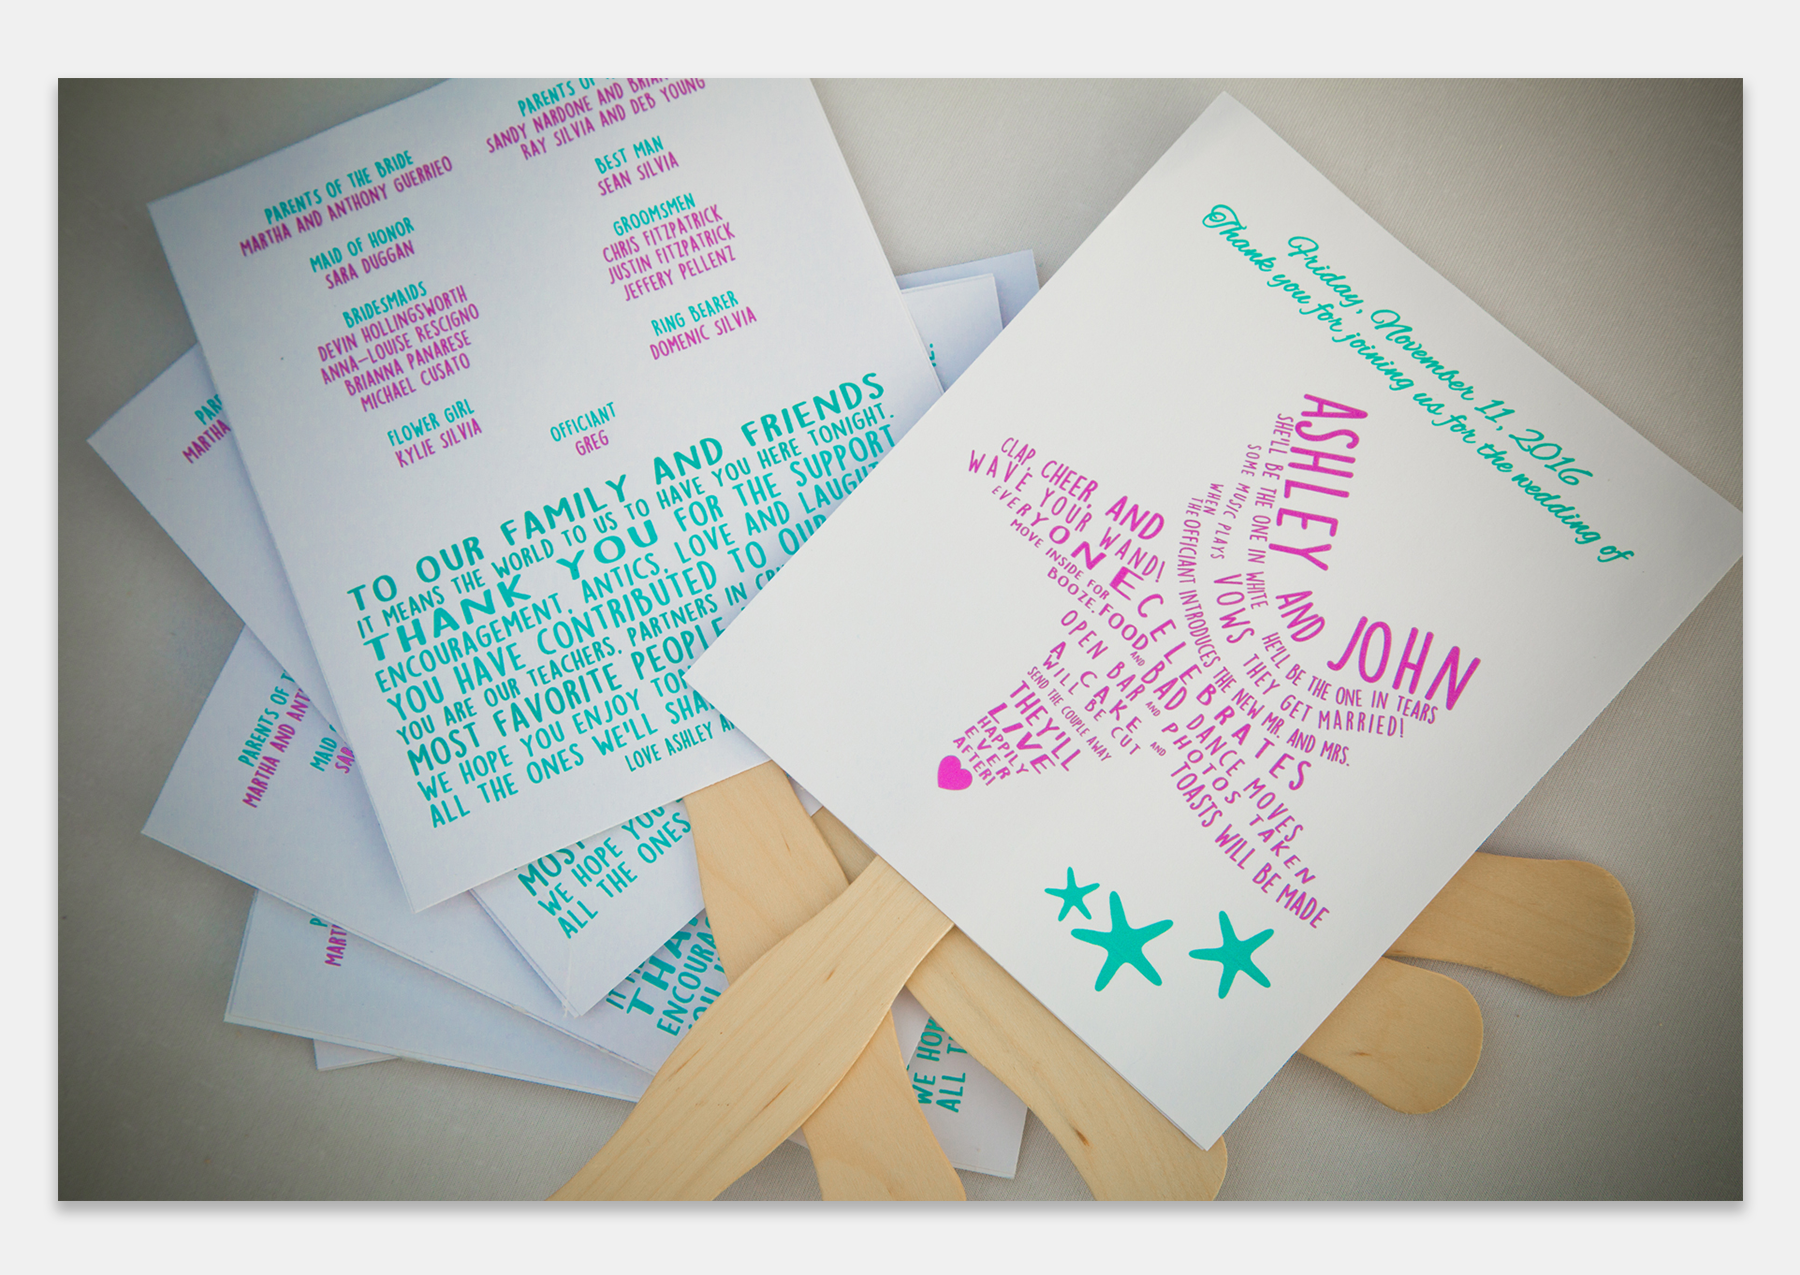 PARENTS OF THE BRIDE
MARTHA AND ANTHONY GUERRIEO
MAID OF HONOR
SARA DUGGAN
BRIDESMAIDS
DEVIN HOLLINGSWORTH
ANNA-LOUISE RESCIGNO
BRIANNA PANARESE
MICHAEL CUSATO
FLOWER GIRL
KYLIE SILVIA
PARENTS OF
SANDY NARDONE AND
RAY SILVIA AND DEB YOUNG
BEST MAN
SEAN SILVIA
GROOMSMEN
CHRIS FITZPATRICK
JUSTIN FITZPATRICK
JEFFERY PELLENZ
RING BEARER
DOMENIC SILVIA
OFFICIANT
GREG
TO OUR FAMILY AND FRIENDS
IT MEANS THE WORLD TO US TO HAVE YOU HERE TONIGHT.
THANK YOU FOR THE SUPPORT
ENCOURAGEMENT, ANTICS, LOVE AND
YOU HAVE CONTRIBUTED TO OUR
YOU ARE OUR TEACHERS, PARTNERS IN
MOST FAVORITE PEOPLE
WE HOPE YOU ENJOY
ALL THE ONES WE'LL
LOVE ASHLEY
Friday, November 11, 2016
Thank you for joining us for the wedding of
ASHLEY AND JOHN
SHE'LL BE THE ONE IN WHITE HE'LL BE THE ONE IN TEARS
SOME MUSIC PLAYS
WHEN VOWS THEY GET MARRIED!
THE OFFICIANT INTRODUCES THE NEW MR. AND MRS.
CLAP, CHEER, AND
WAVE YOUR WAND!
EVERYONE CELEBRATES
MOVE INSIDE FOR
BOOZE, FOOD AND BAD DANCE MOVES
OPEN BAR AND PHOTOS TAKEN
A CAKE
WILL BE CUT AND TOASTS WILL BE MADE
SEND THE COUPLE AWAY
THEY'LL
LIVE
HAPPILY
EVER
AFTER!
MARTHA
PARENTS OF
MARTHA AND
MAID
MOST
WE HOPE YOU
ALL THE ONES
WE
ALL